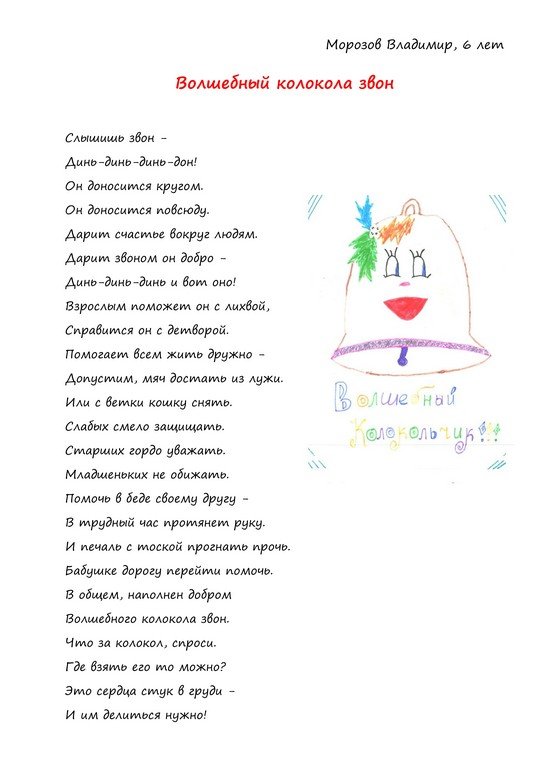 Морозов Владимир, 6 лет
Волшебный колокола звон
Слышишь звон -
Динь-динь-динь-дон!
Он доносится кругом.
Он доносится повсюду.
Дарит счастье вокруг людям.
Дарит звоном он добро -
Динь-динь-динь и вот оно!
Взрослым поможет он с лихвой,
Справится он с детворой.
Помогает всем жить дружно -
Допустим, мяч достать из лужи.
Или с ветки кошку снять.
Слабых смело защищать.
Старших гордо уважать.
Младшеньких не обижать.
Помочь в беде своему другу -
В трудный час протянет руку.
И печаль с тоской прогнать прочь.
Бабушке дорогу перейти помочь.
В общем, наполнен добром
Волшебного колокола звон.
Что за колокол, спроси.
Где взять его то можно?
Это сердца стук в груди -
И им делиться нужно!
Волшебный
Колокольчик!!!